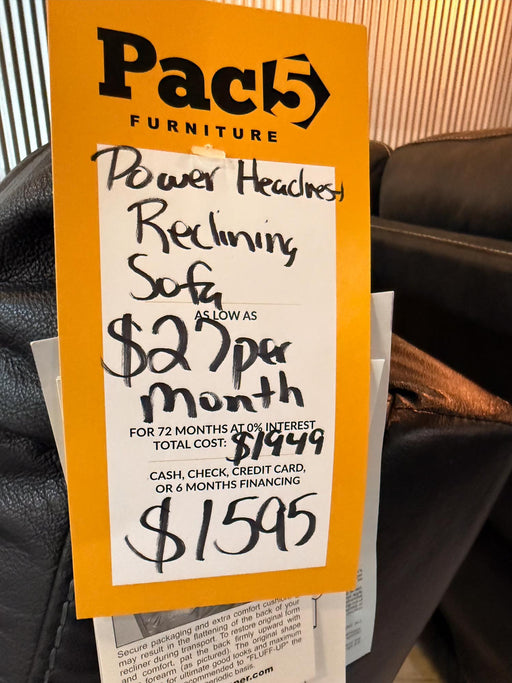 Pac5
FURNITURE
Power Headrest
Reclining
Sofa
AS LOW AS
$27 per
Month
FOR 72 MONTHS AT 0% INTEREST
TOTAL COST: $1949
CASH, CHECK, CREDIT CARD,
OR 6 MONTHS FINANCING
$1595
Secure packaging and extra comfort cushioning
may result in the flattening of the back of your
recliner during transport. To restore original form
and comfort, pat the back firmly upward with
forearm (as pictured). The original shape
for ultimate good looks and maximum
recommended to "FLUFF-UP" the
periodic basis.
per.com